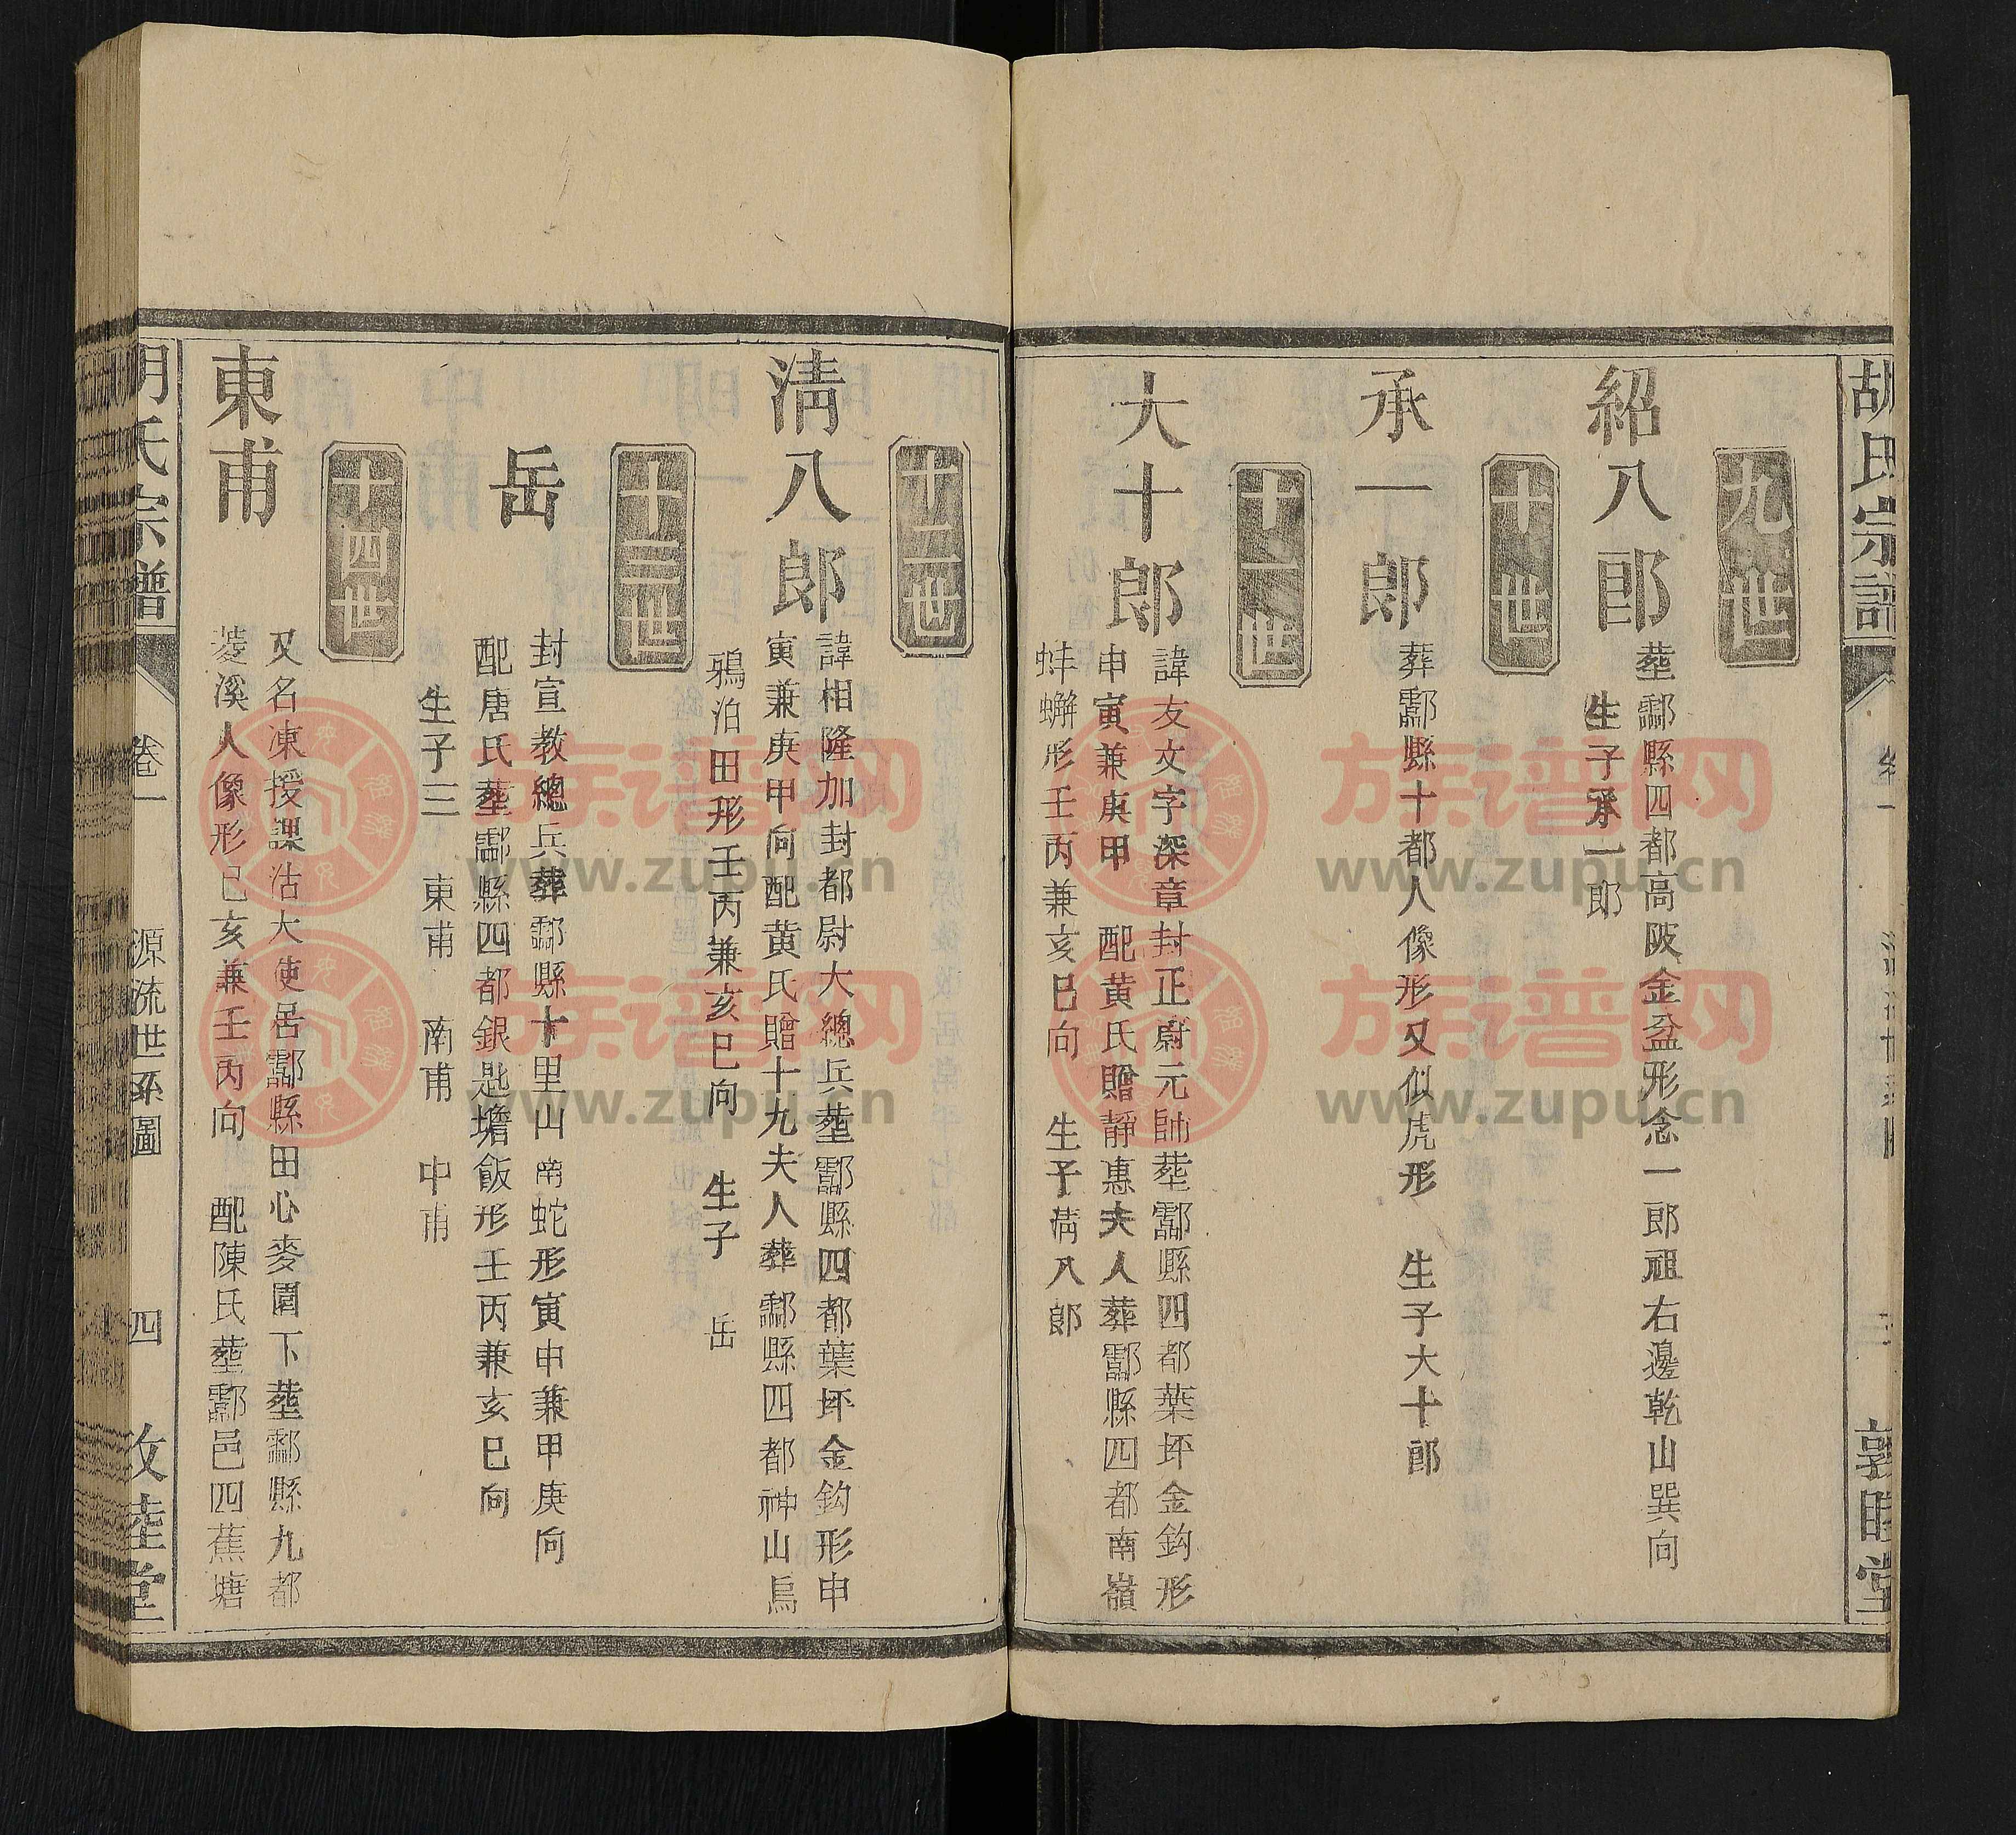 胡氏宗譜
敦睦堂
九世
紹八郎
塟酃縣四都高陂金盆形念一郎祖右邊乾山巽向
生子承一郎
十世
承一郎
葬酃縣十都人像形又似虎形 生子大十郎
十一世
大十郎
諱友文字深章封正尉元帥塟酃縣四都葉坪金鈎形
申寅兼庚甲 配黄氏贈靜惠夫人葬酃縣四都南嶺
蚌蠏形壬丙兼亥巳向 生子清八郎
十二世
清八郎
諱相隆加封都尉大總兵塟酃縣四都葉坪金鈎形申
寅兼庚甲向配黄氏贈十九夫人葬酃縣四都神山烏
鴉泊田形壬丙兼亥巳向 生子 岳
十三世
岳
封宣教總兵葬酃縣十里山南蛇形寅申兼甲庚向
配唐氏塟酃縣四都銀匙擔飯形壬丙兼亥巳向
生子三 東甫 南甫 中甫
十四世
東甫
又名凍授課沽大使居酃縣田心麥園下塟酃縣九都
菱溪人像形巳亥兼壬丙向 配陳氏塟酃邑四蕉塘
胡氏宗譜
卷一
源流世系圖
四
敦睦堂
族谱网
www.zupu.cn
族谱网
www.zupu.cn
族谱网
www.zupu.cn
族谱网
www.zupu.cn